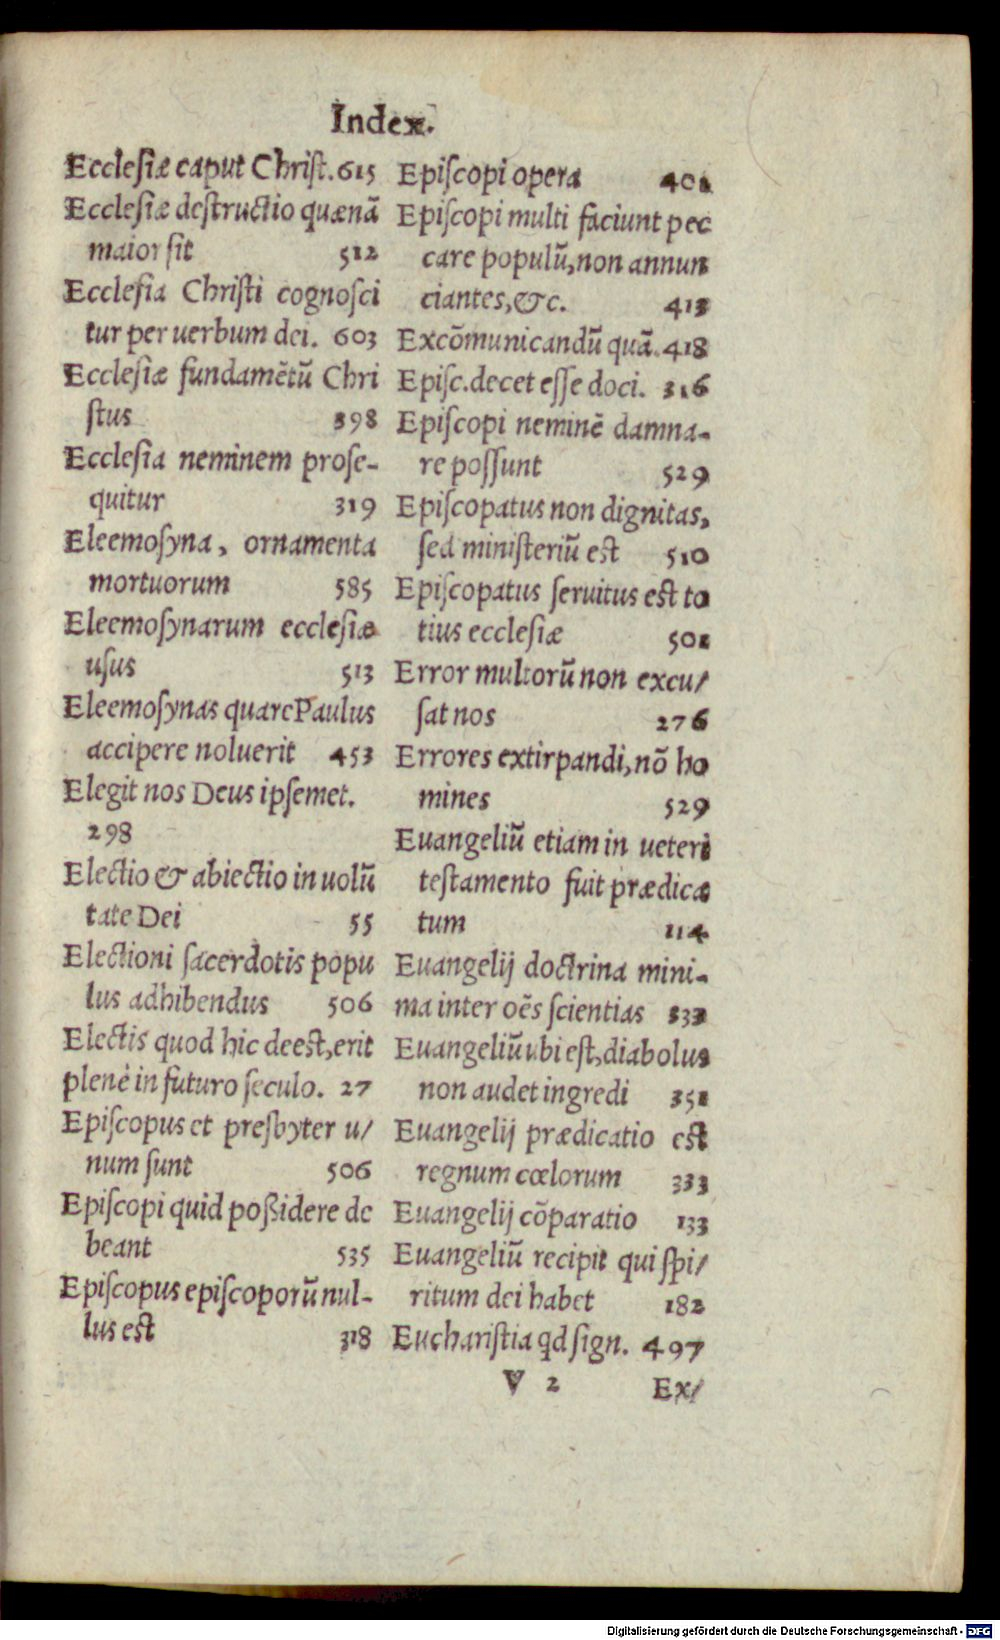 Index.
Ecclesiæ caput Christ. 615
Ecclesiæ destructio quænã
maior sit 512
Ecclesia Christi cognosci
tur per uerbum dei. 603
Ecclesiæ fundamẽtũ Chri
stus 398
Ecclesia neminem prose-
quitur 319
Eleemosyna, ornamenta
mortuorum 585
Eleemosynarum ecclesiæ
usus 513
Eleemosynas quare Paulus
accipere noluerit 453
Elegit nos Deus ipsemet.
298
Electio & abiectio in uolũ
tate Dei 55
Electioni sacerdotis popu
lus adhibendus 506
Electis quod hic deest, erit
plenè in futuro seculo. 27
Episcopus et presbyter u/
num sunt 506
Episcopi quid poßidere de
beant 535
Episcopus episcoporũ nul-
lus est 318
Episcopi opera 401
Episcopi multi faciunt pec
care populũ, non annun
ciantes, &c. 413
Excõmunicandũ quã. 418
Episc. decet esse doci. 316
Episcopi neminẽ damna-
re possunt 529
Episcopatus non dignitas,
sed ministeriũ est 510
Episcopatus seruitus est to
tius ecclesiæ 501
Error multorũ non excu/
sat nos 276
Errores extirpandi, nõ ho
mines 529
Euangeliũ etiam in ueteri
testamento fuit prædica
tum 114
Euangelij doctrina mini-
ma inter oẽs scientias 333
Euangeliũ ubi est, diabolus
non audet ingredi 351
Euangelij prædicatio est
regnum cœlorum 333
Euangelij cõparatio 133
Euangeliũ recipit qui spi/
ritum dei habet 182
Eucharistia qd sign. 497
V 2 Ex/
Digitalisierung gefördert durch die Deutsche Forschungsgemeinschaft - DFG